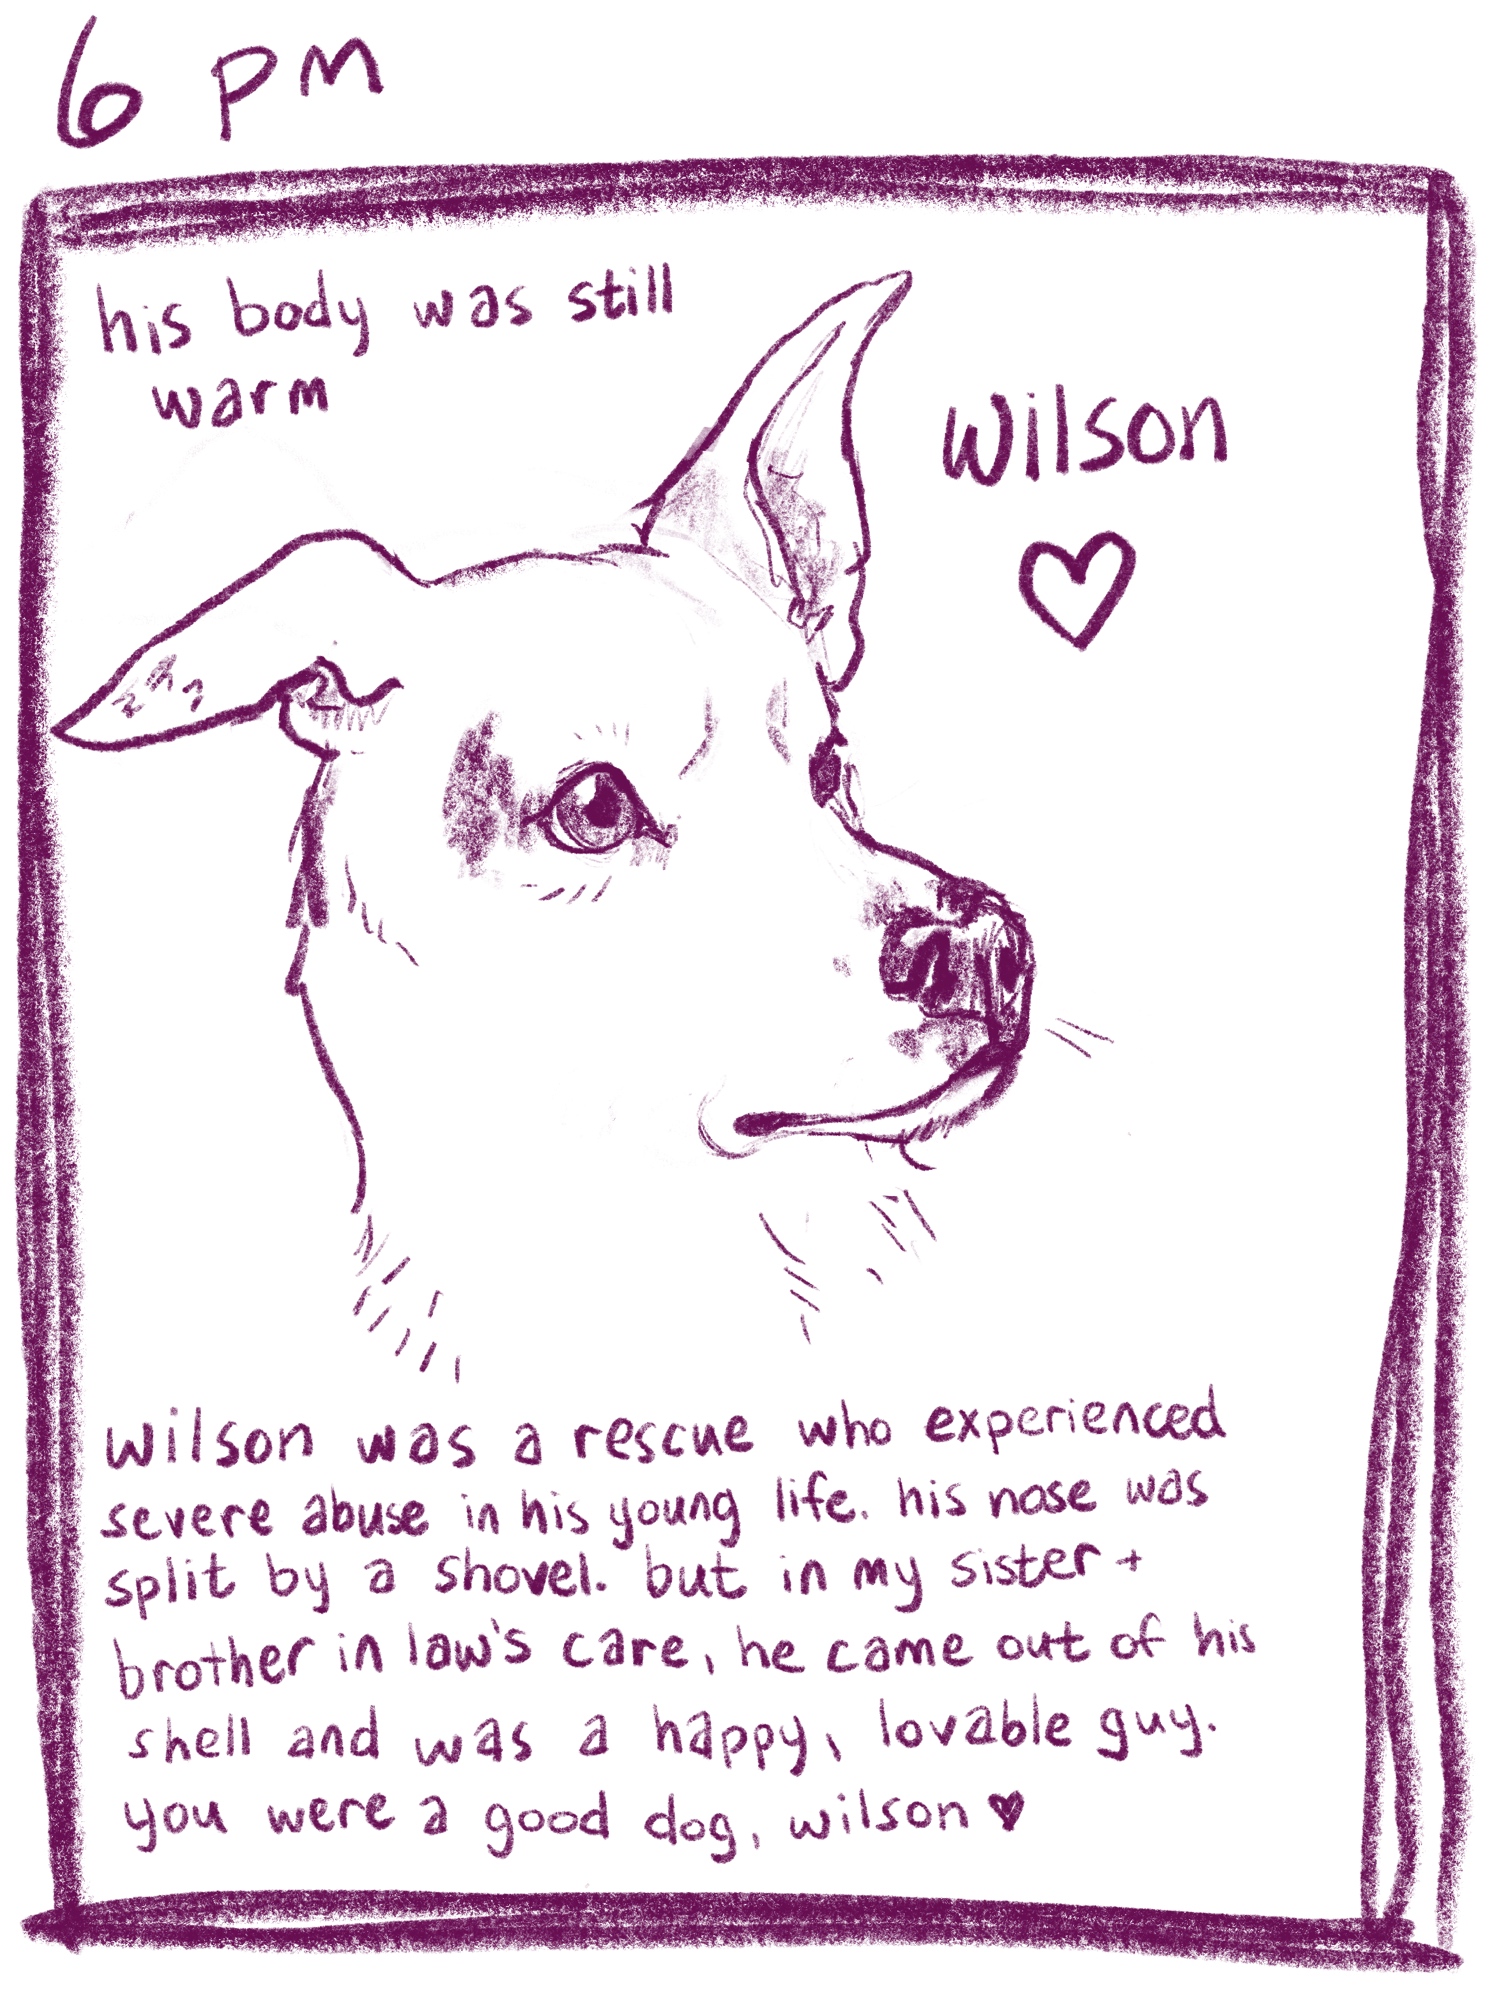 6 pm
his body was still
warm
wilson
wilson was a rescue who experienced
severe abuse in his young life. his nose was
split by a shovel. but in my sister +
brother in law's care, he came out of his
shell and was a happy, lovable guy.
you were a good dog, wilson ♥